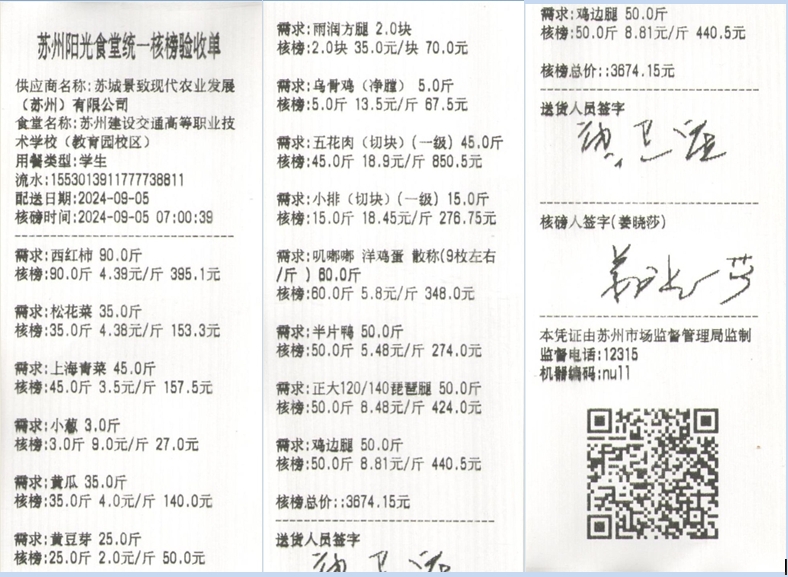 苏州阳光食堂统一核榜验收单
供应商名称:苏城景致现代农业发展
（苏州）有限公司
食堂名称:苏州建设交通高等职业技
术学校（教育园校区）
用餐类型:学生
流水:1553013911777738811
配送日期:2024-09-05
核磅时间:2024-09-05 07:00:39
需求:西红柿 90.0斤
核榜:90.0斤 4.39元/斤 395.1元
需求:松花菜 35.0斤
核榜:35.0斤 4.38元/斤 153.3元
需求:上海青菜 45.0斤
核榜:45.0斤 3.5元/斤 157.5元
需求:小葱 3.0斤
核榜:3.0斤 9.0元/斤 27.0元
需求:黄瓜 35.0斤
核榜:35.0斤 4.0元/斤 140.0元
需求:黄豆芽 25.0斤
核榜:25.0斤 2.0元/斤 50.0元
需求:雨润方腿 2.0块
核榜:2.0块 35.0元/块 70.0元
需求:乌骨鸡（净膛） 5.0斤
核榜:5.0斤 13.5元/斤 67.5元
需求:五花肉（切块）(一级) 45.0斤
核榜:45.0斤 18.9元/斤 850.5元
需求:小排（切块）(一级) 15.0斤
核榜:15.0斤 18.45元/斤 276.75元
需求:叽嘟嘟 洋鸡蛋 散称(9枚左右
/斤 ) 60.0斤
核榜:60.0斤 5.8元/斤 348.0元
需求:半片鸭 50.0斤
核榜:50.0斤 5.48元/斤 274.0元
需求:正大120/140琵琶腿 50.0斤
核榜:50.0斤 8.48元/斤 424.0元
需求:鸡边腿 50.0斤
核榜:50.0斤 8.81元/斤 440.5元
核榜总价::3674.15元
送货人员签字
需求:鸡边腿 50.0斤
核榜:50.0斤 8.81元/斤 440.5元
核榜总价::3674.15元
送货人员签字
核磅人签字(姜晓莎)
本凭证由苏州市场监督管理局监制
监督电话:12315
机器编码:null